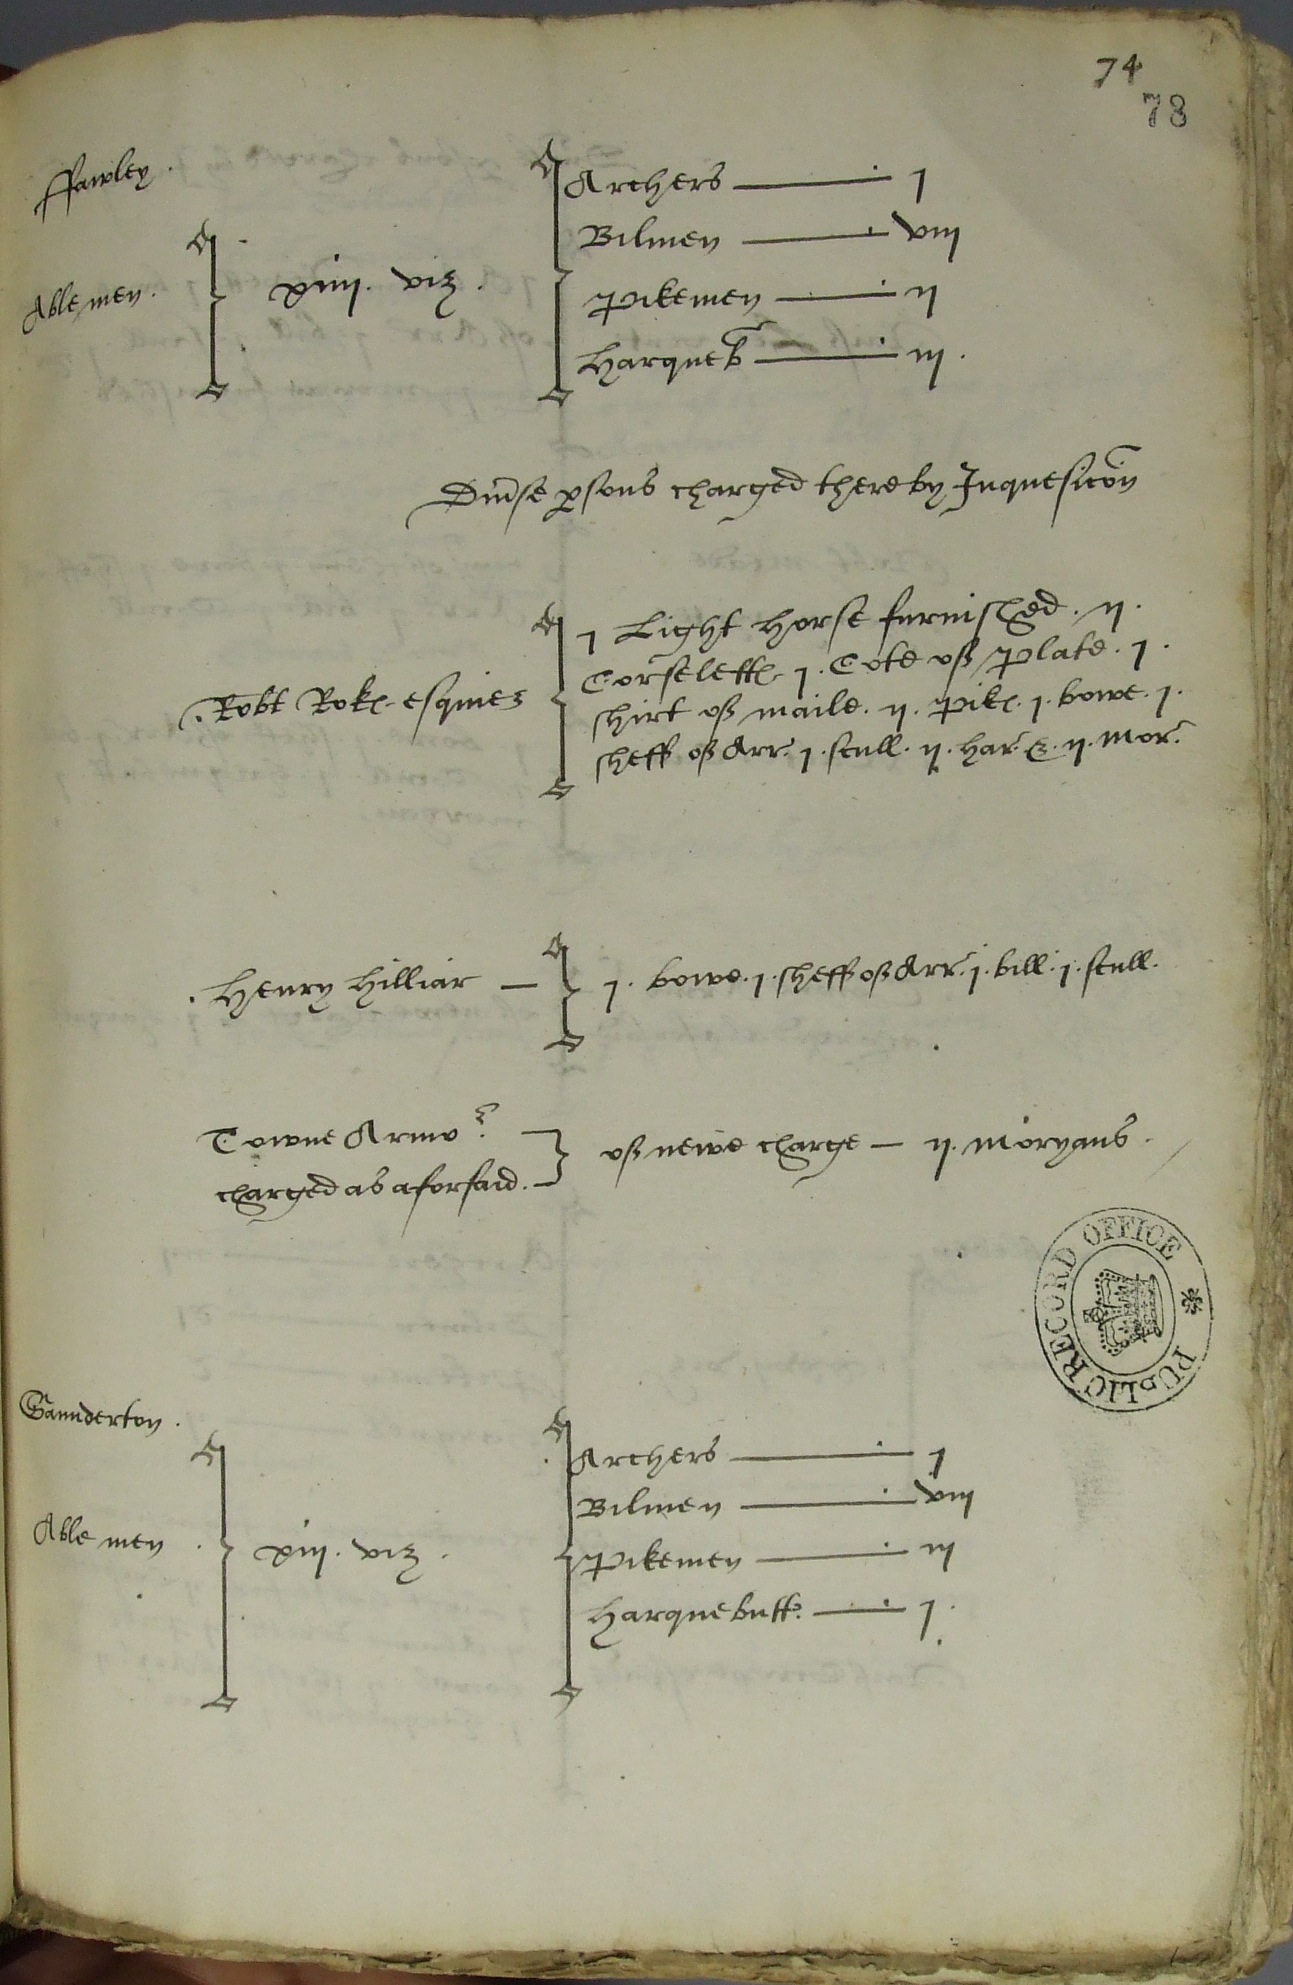 74
78
ffawley.
Able men. xiiij. viz.
Archers j
Bilmen viij
Pikemen ij
Harqueb iij.
Div'se p'sons charged there by Inquesicon
.Robt Rok esquier
j Light horse furnished. ij.
Corselett j. Cote off Plate. j.
shirt off maile. ij. pik. j. bowe. j.
sheff off Arr. j. scull. ij. har. &. ij. mor.
. Henry Hilliar
j. bowe. j. sheff off Arr. j. bill. j. scull.
Towne Armor.
charged as aforsaid.
off newe charge ij. moryans.
PUBLIC RECORD OFFICE
Saunderton.
Able men xiij. viz.
Archers j
Bilmen viij
Pikemen iij
Harquebutt. j.